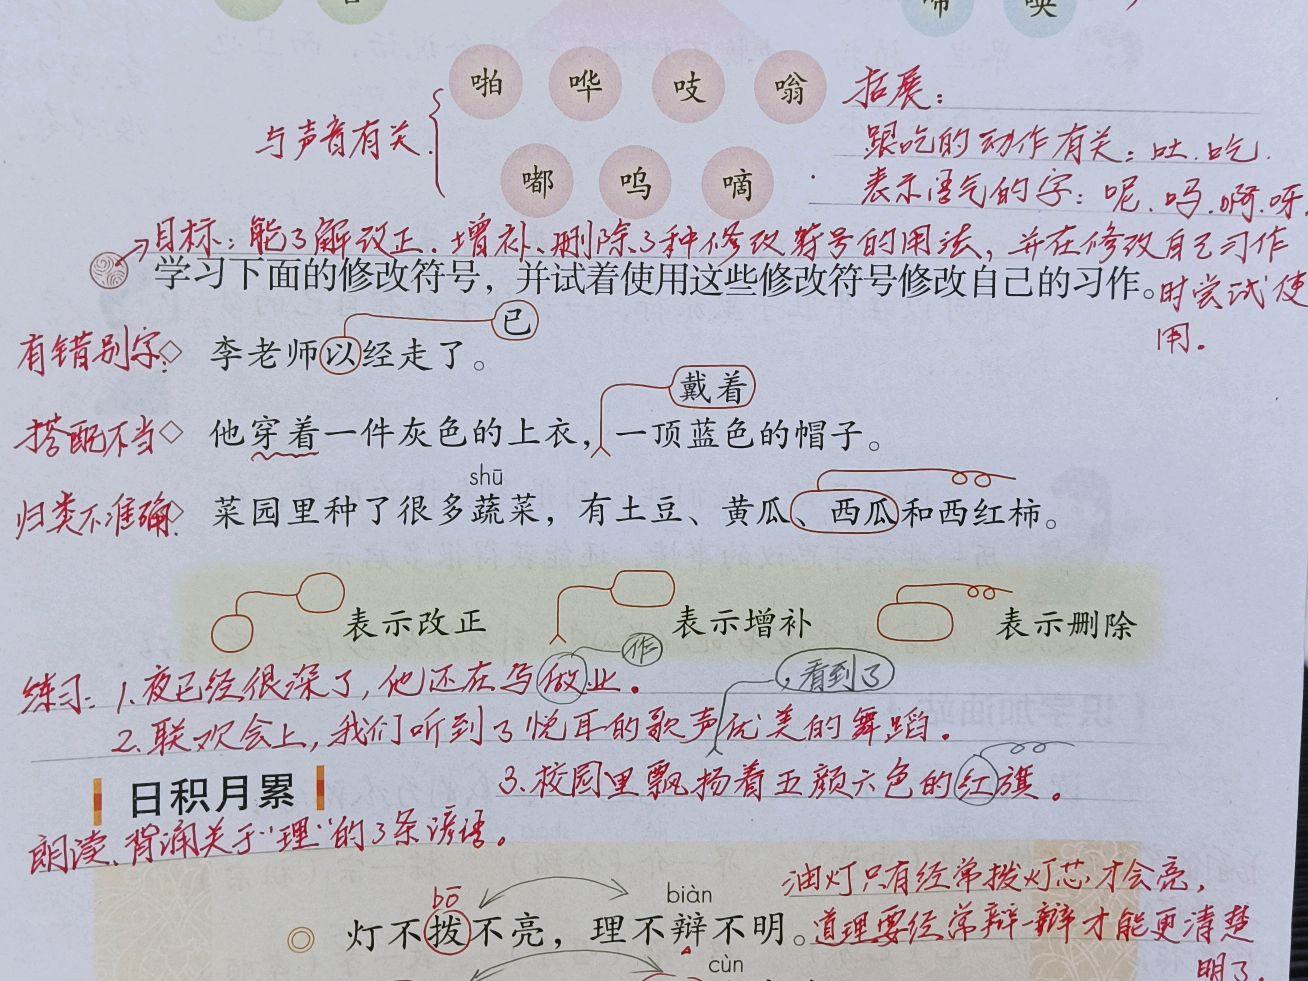 啼 唤
啪 哗 吱 嗡
拓展：
与声音有关
跟吃的动作有关：吐、吃.
嘟 呜 嘀
表示语气的字：呢、吗、啊、呀
目标：能了解改正、增补、删除3种修改符号的用法，并在修改自己习作
学习下面的修改符号，并试着使用这些修改符号修改自己的习作。
时尝试使
用.
已
有错别字：
李老师以经走了。
戴着
搭配不当
他穿着一件灰色的上衣，一顶蓝色的帽子。
shū
归类不准确：
菜园里种了很多蔬菜，有土豆、黄瓜、西瓜和西红柿。
表示改正 表示增补 表示删除
作
练习：1.夜已经很深了，他还在写做业。
，看到了
2.联欢会上，我们听到了悦耳的歌声优美的舞蹈。
3.校园里飘扬着五颜六色的红旗。
日积月累
朗读、背诵关于“理”的3条谚语。
油灯只有经常拨灯芯才会亮，
bō biàn
灯不拨不亮，理不辩不明。
道理要经常辩一辩才能更清楚
明了.
cùn